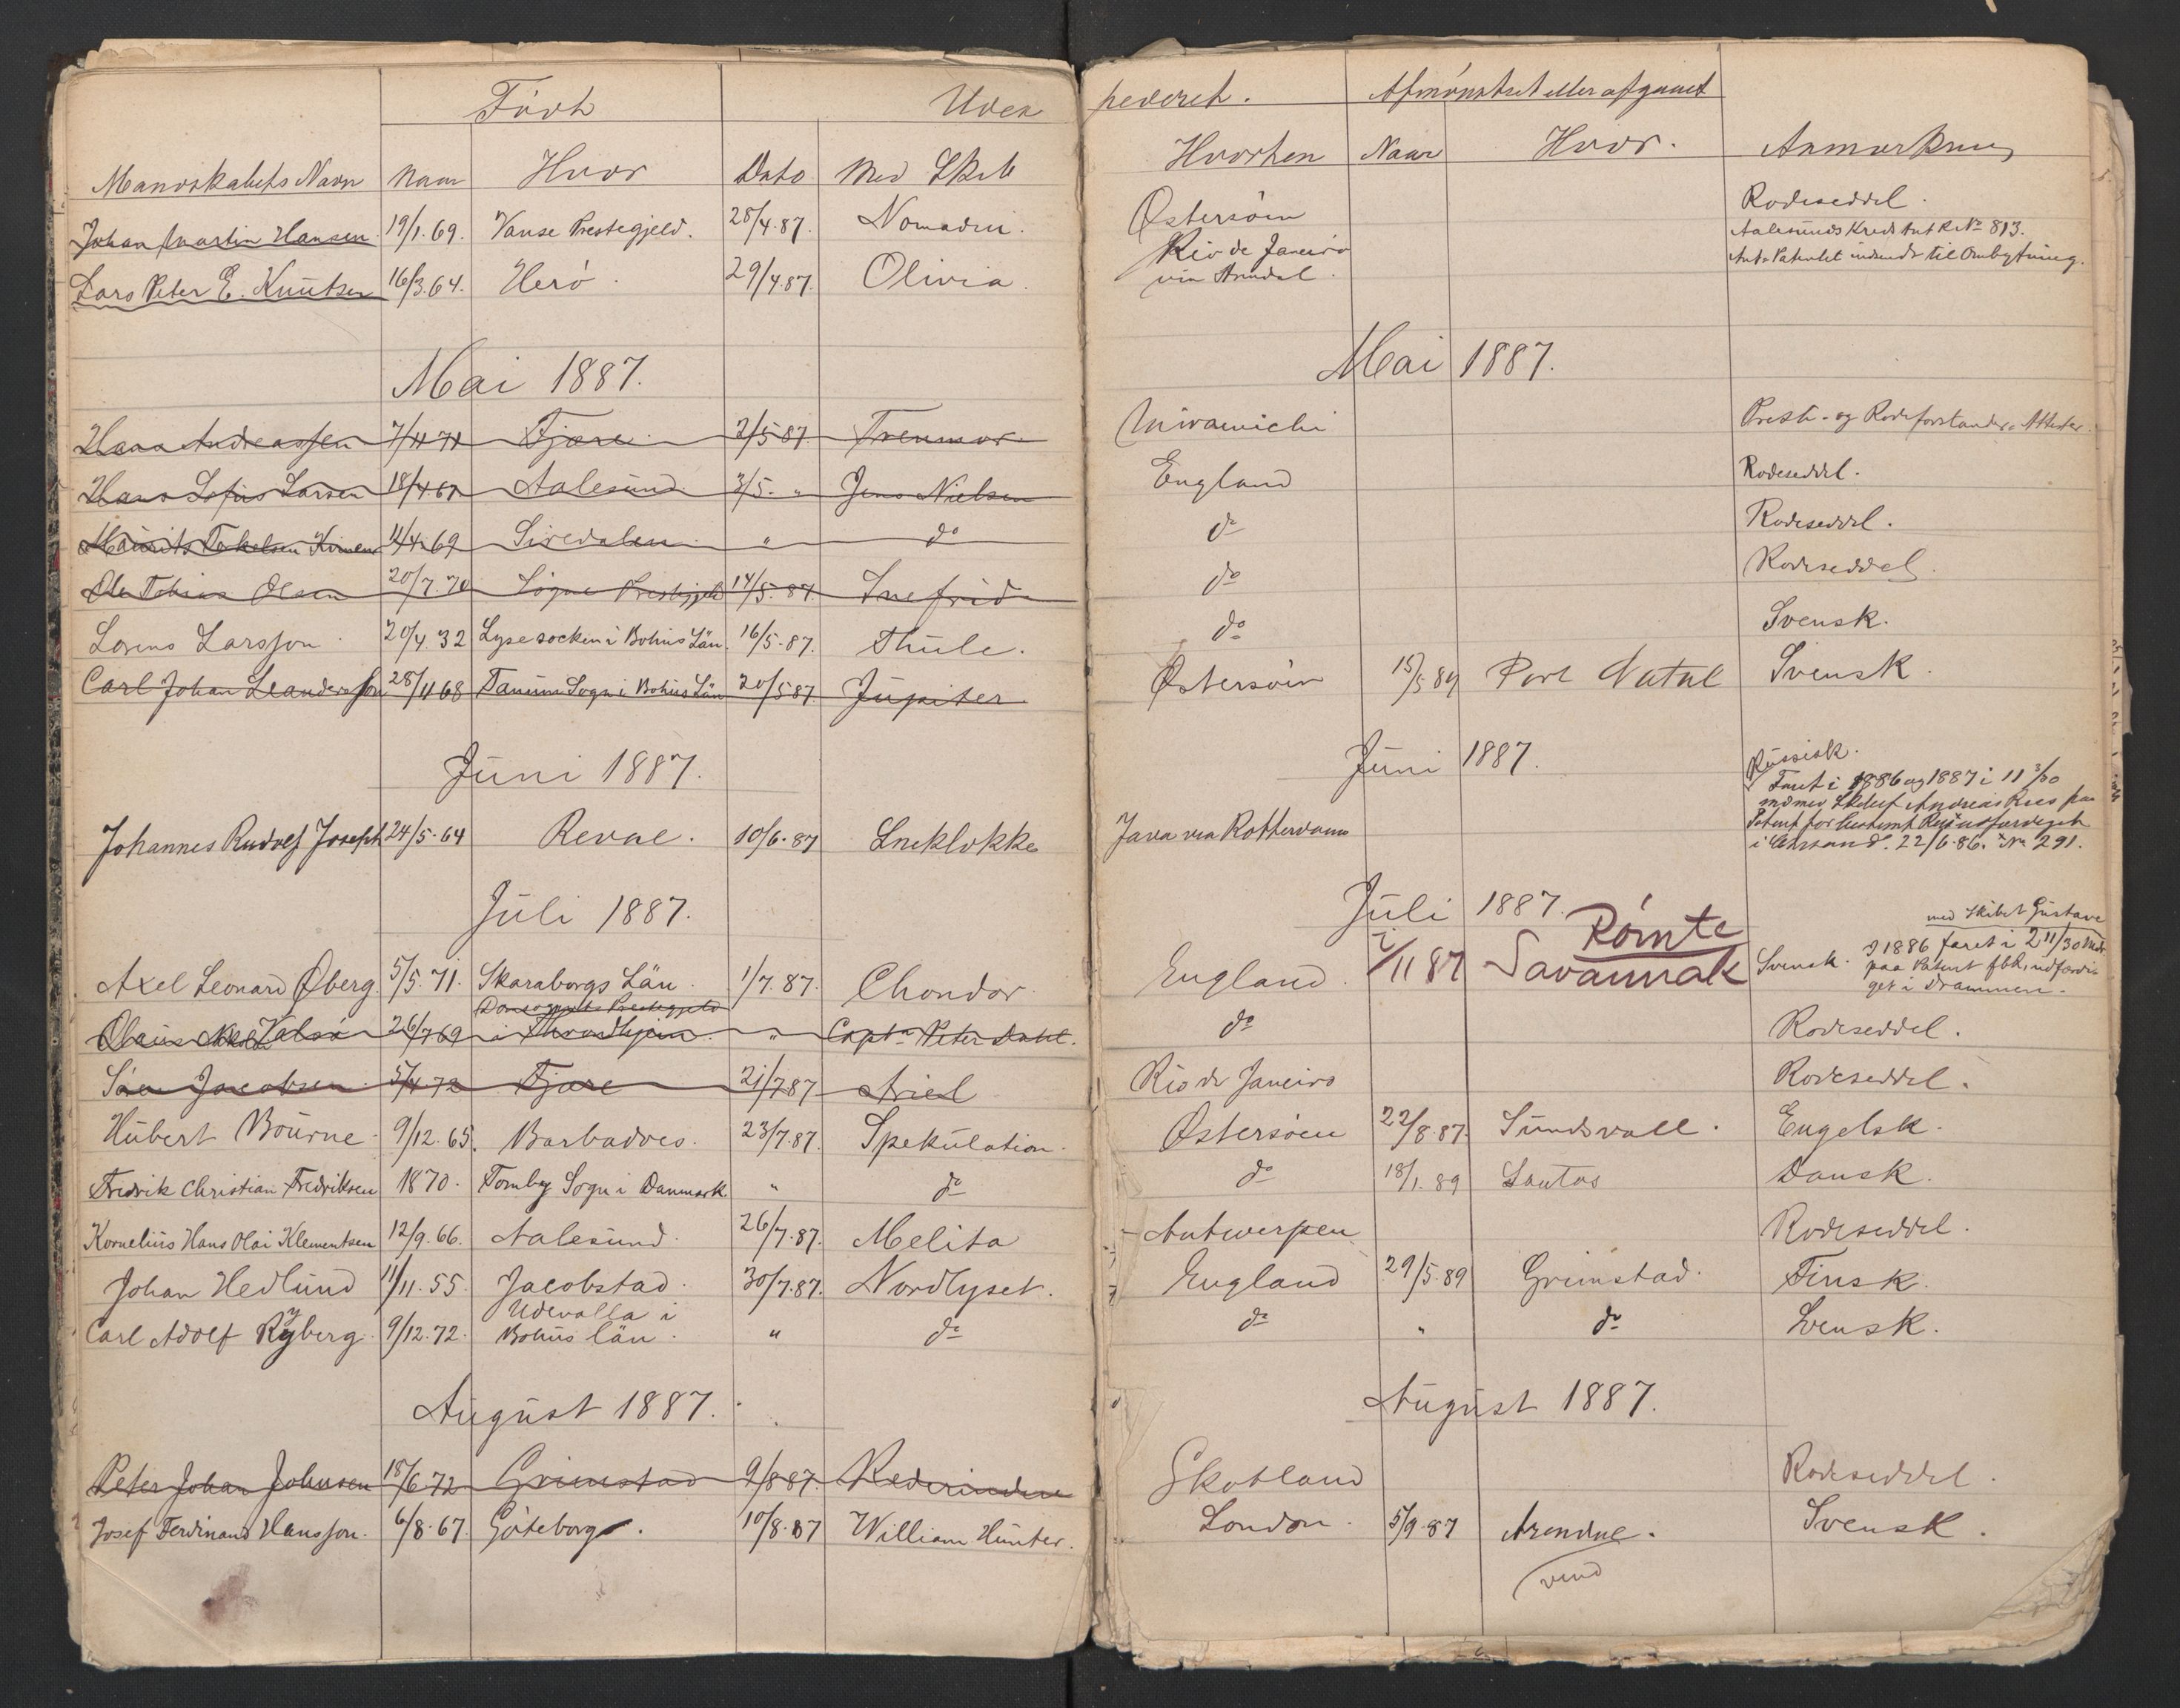 Född Uden
Mandskabets Navn Naar Hvor Dato Med Skib
Johan Martin Hansen 19/1.69. Vanse Prestegjeld. 28/4.87. Nomaden.
Lars Peter E. Knutsen 16/3.64. Herö. 29/4.87. Olivia.
Mai 1887.
Hans Andreassen 7/4 71 Fjære 2/5 87 Trenmor
Hans Sofus Larsen 18/4.67 Aalesund 3/5. " Jens Nielsen
Mauritz Terkelsen 11/4 69 Siredalen " do
Ole Tobias Olsen 20/7.70 Søgne Prestegjeld 14/5.87. Snefrid
Lorens Larsson 20/4 32 Lyse socken i Bohus Län. 16/5.87. Thule.
Carl Johan Leandersson 28/11 68 Tanum Sogn i Bohus Län 20/5 87 Jupiter
Juni 1887.
Johannes Rudolf Joseph 24/5.64 Reval. 10/6.87 Sneklokke
Juli 1887.
Axel Leonard Øberg. 5/5.71. Skaraborgs Län. 1/7.87. Chondor
Prestegjeld
Olaus 26/7 69 i Throndhjem. " Captn Peter Dahl.
Søren Jacobsen 5/4 72 Fjære 21/7 87 Ariel
Hubert Bourne 9/12.65. Barbadoes. 23/7.87. Spekulation.
Fredrik Christian Fredriksen 1870. Tomby Sogn i Danmark " do
Kornelius Hans Olai Klementsen 12/9.66. Aalesund. 26/7.87. Melita
Johan Hedlund 11/11.55. Jacobstad. 30/7.87. Nordlyset.
Udevalla i
Carl Adolf Ryberg 9/12.72. Bohus län. " do
August 1887.
Peter Johan Johnsen 18/6 72 Grimstad 9/8 87. Rederinden
Josef Ferdinand Hansson. 6/8.67. Göteborg. 10/8.87 William Hunter.
pederet. Afmønstret eller afgaaet
Hvorhen Naar Hvor. Anmærkning
Østersøen Rodeseddel.
Aalesunds Kreds No 813.
Rio de Janeiro
via Arendal. Patentet indsendt til Ombytning.
Mai 1887.
Miramichi Prest- og Rodeforstander Attester.
England Rodeseddel.
do Rodeseddel.
do Rodeseddel.
do Svensk.
Østersøen 15/5 89 Port Natal Svensk.
Juni 1887.
Russisk.
Faret i 1886 og 1887 i 11 3/30
Java via Rotterdam
22/6.86. No 291.
Juli 1887.
med Skibet Gustava
Rømte
England. 2/11 87 Savannah Svensk. I 1886 faret i 2 11/30 Mdr.
paa Patent
get i Drammen.
do Rodeseddel.
Rio de Janeiro Rodeseddel.
Østersøen 22/8 87. Sundsvall. Engelsk.
do 18/1.89 Santos Dansk.
Antwerpen Rodeseddel.
England 29/5.89 Grimstad. Finsk.
do " do Svensk.
August 1887.
Skotland Rodeseddel.
London. 5/9.87 Arendal. Svensk.
vend